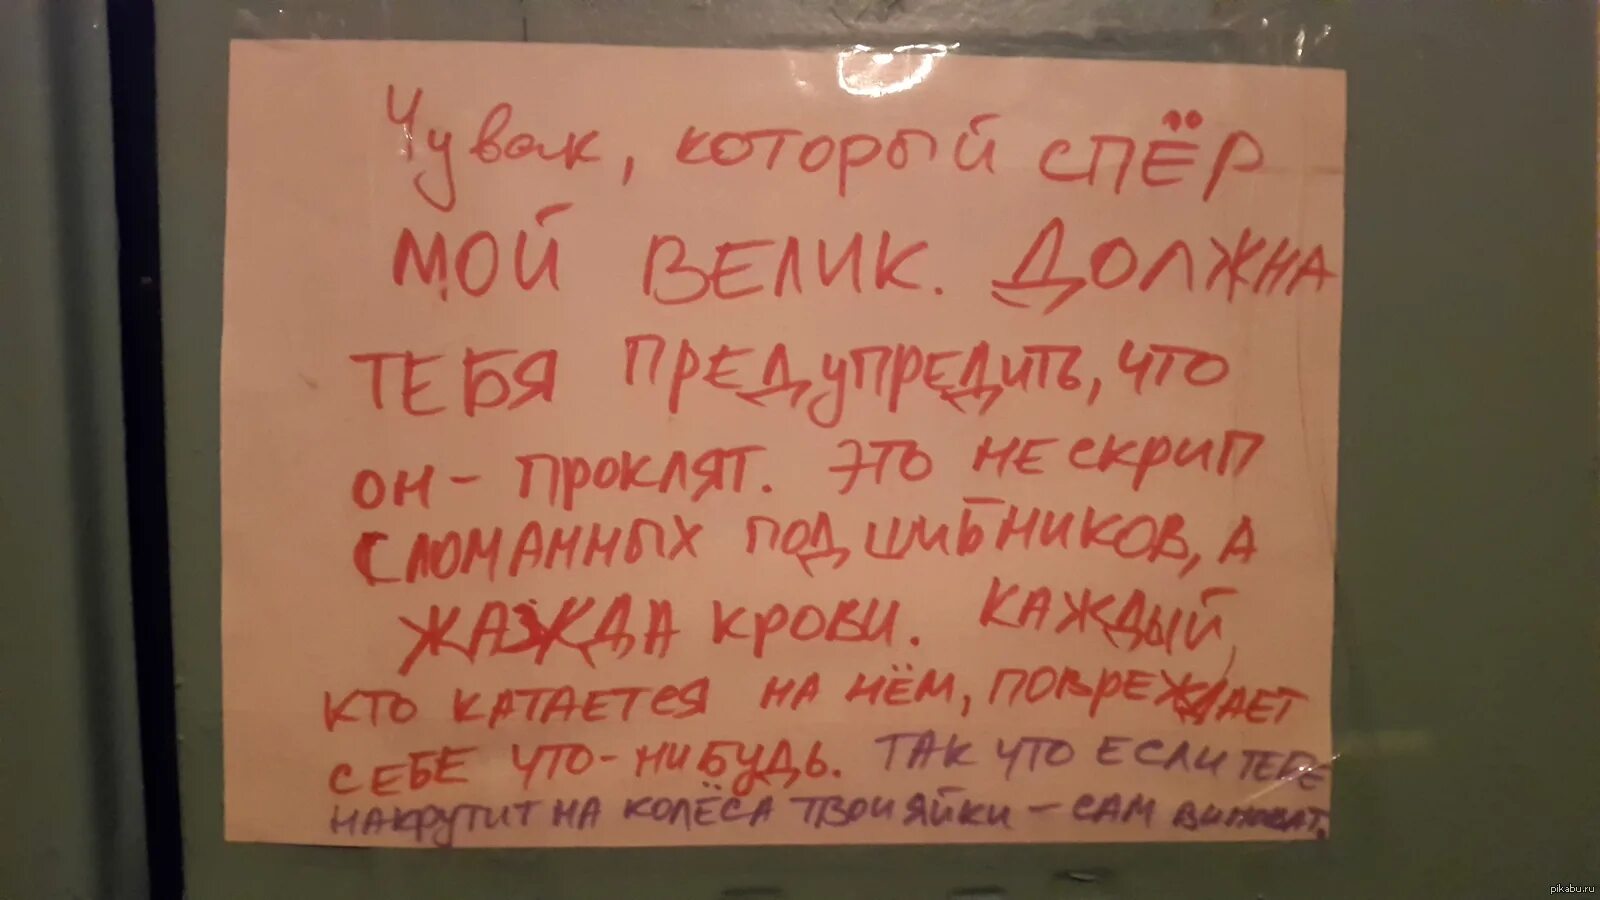 Чувак, который спёр
мой велик. Должна
тебя предупредить, что
он - проклят. Это не скрип
сломанных подшибников, а
жажда крови. Каждый,
кто катается на нём, повреждает
себе что-нибудь. Так что если тебе
накрутит на колёса твои яйки - сам виноват.
pikabu.ru